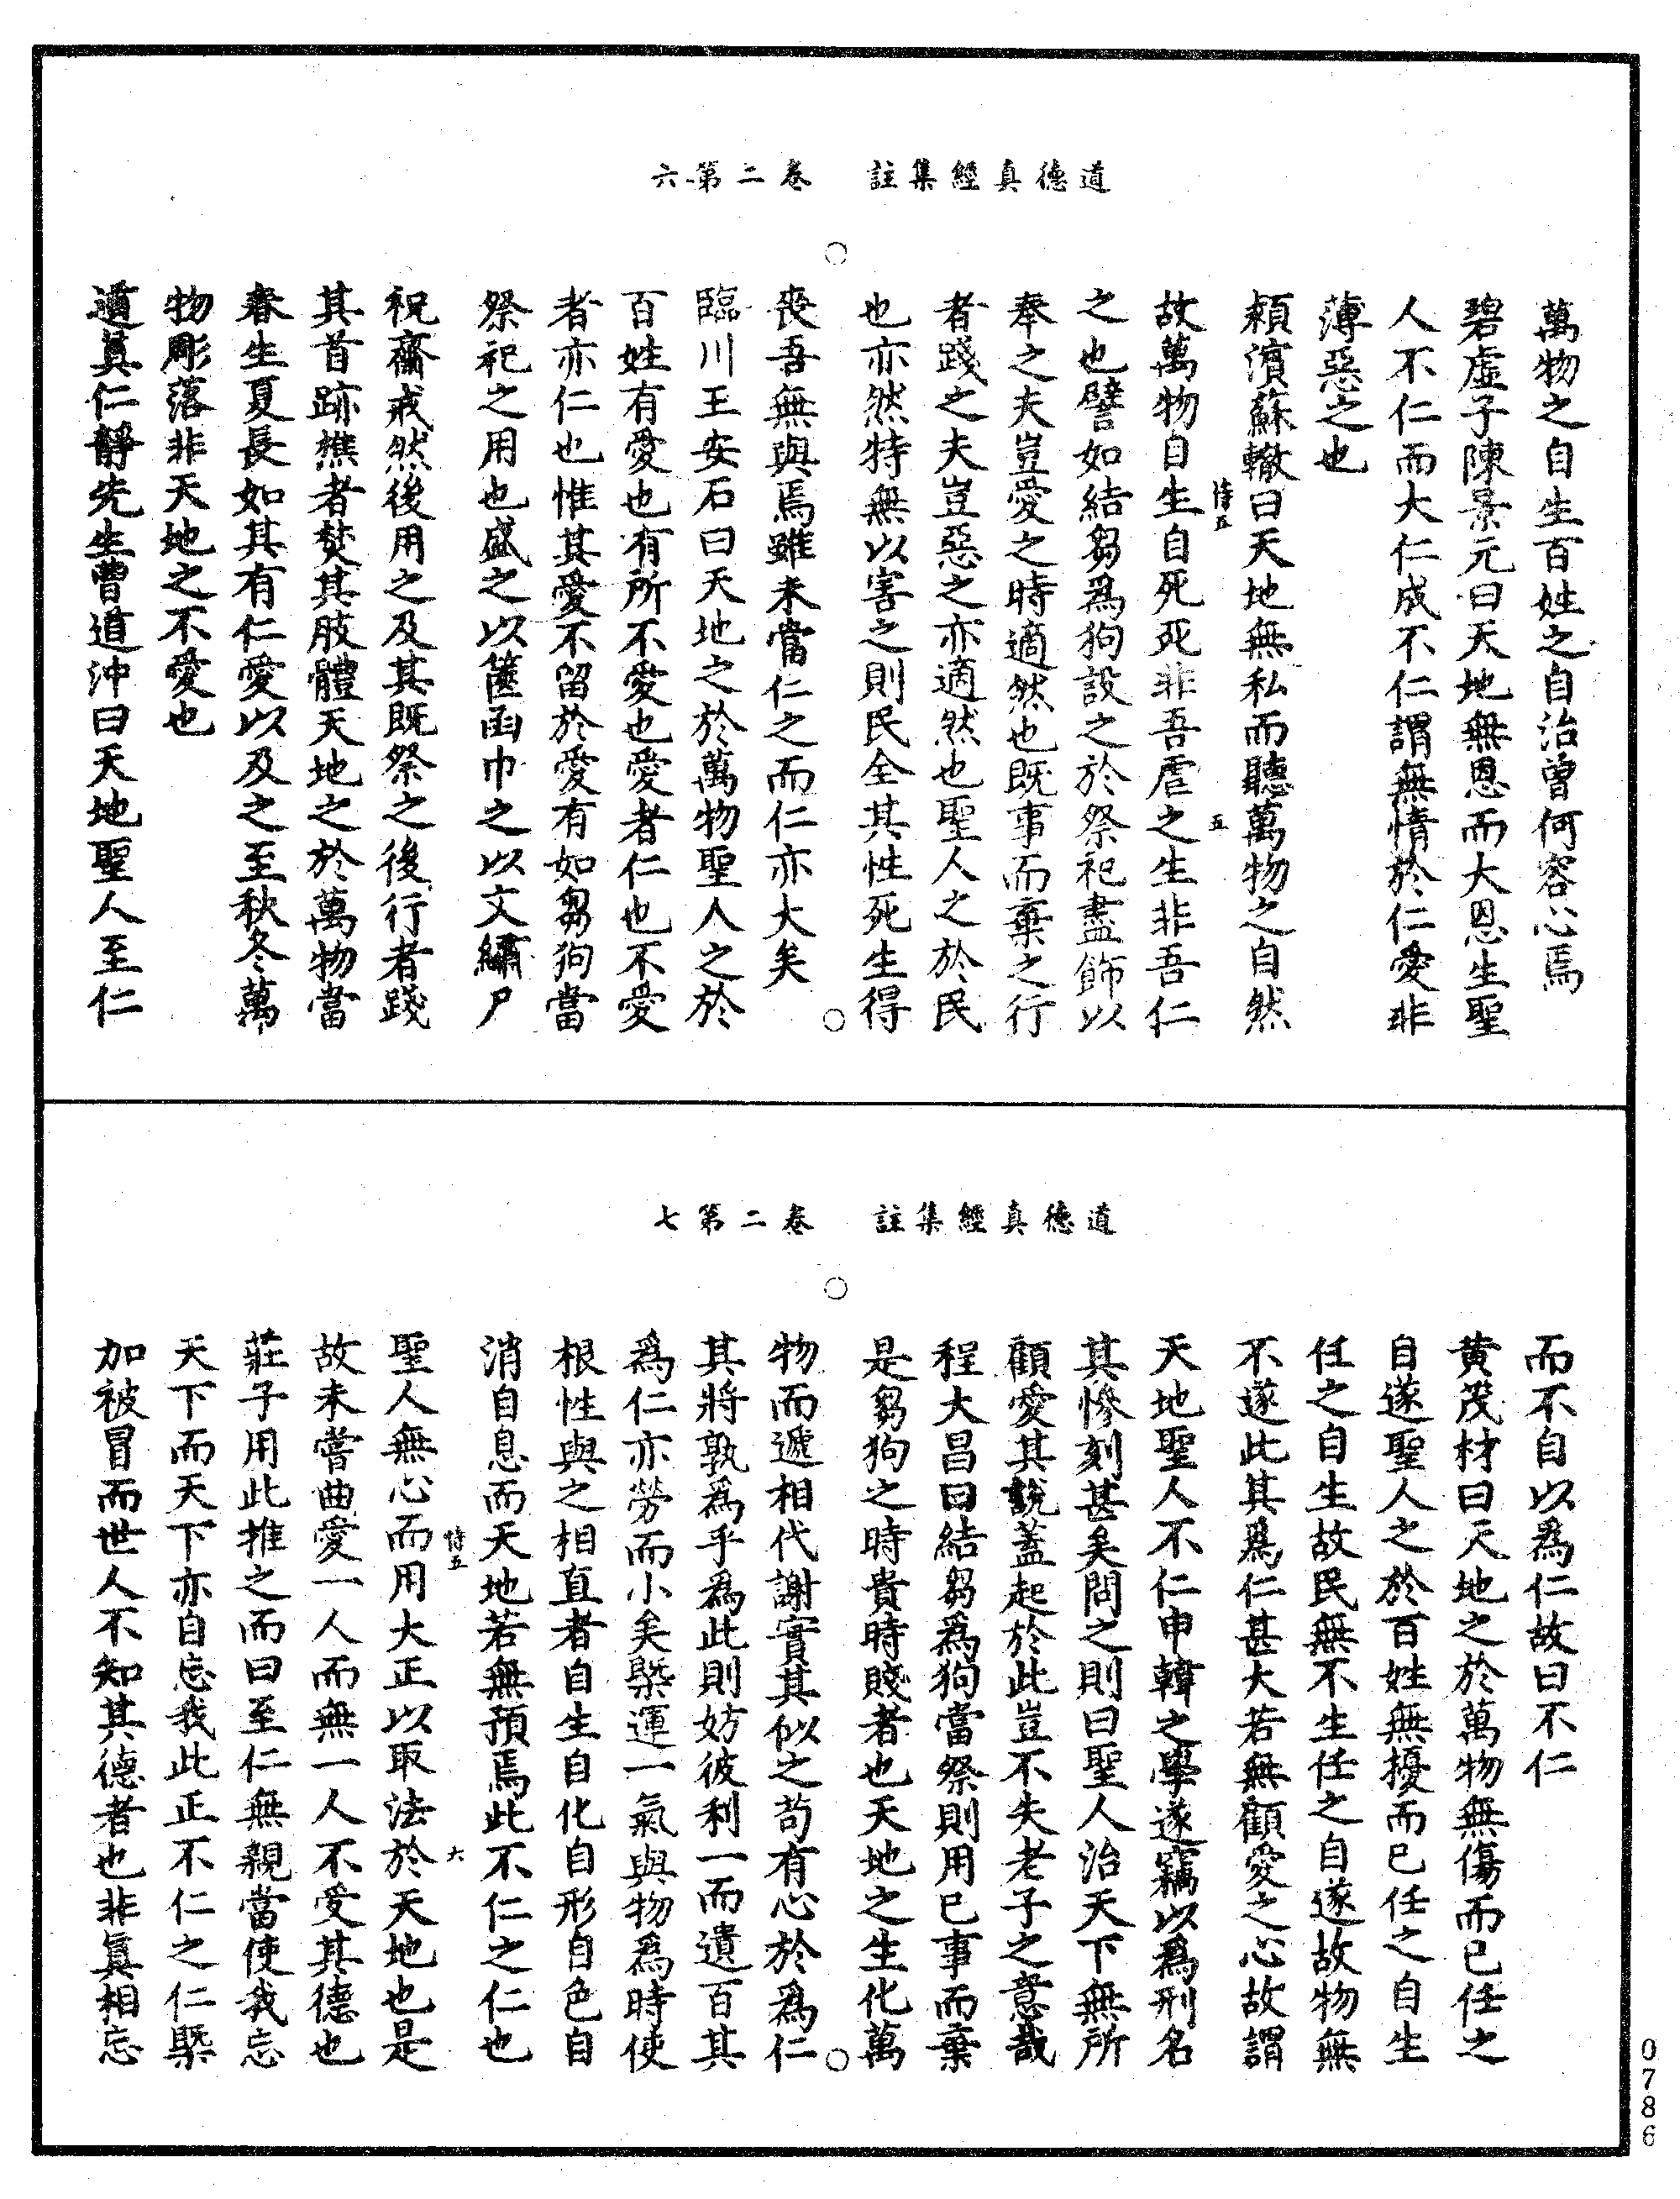 道德真經集註 卷二第六
萬物之自生百姓之自治曾何容心焉
碧虛子陳景元曰天地無恩而大恩生聖
人不仁而大仁成不仁謂無情於仁愛非
薄惡之也
潁濱蘇轍曰天地無私而聽萬物之自然
恃五 五
故萬物自生自死死非吾虐之生非吾仁
之也譬如結芻爲狗設之於祭祀盡飾以
奉之夫豈愛之時適然也既事而棄之行
者踐之夫豈惡之亦適然也聖人之於民
也亦然特無以害之則民全其性死生得
喪吾無與焉雖未當仁之而仁亦大矣
臨川王安石曰天地之於萬物聖人之於
百姓有愛也有所不愛也愛者仁也不愛
者亦仁也惟其愛不留於愛有如芻狗當
祭祀之用也盛之以篋函巾之以文繡尸
祝齋戒然後用之及其既祭之後行者踐
其首跡樵者焚其肢體天地之於萬物當
春生夏長如其有仁愛以及之至秋冬萬
物彫落非天地之不愛也
道真仁靜先生曹道沖曰天地聖人至仁
道德真經集註 卷二第七
而不自以爲仁故曰不仁
黃茂材曰天地之於萬物無傷而已任之
自遂聖人之於百姓無擾而已任之自生
任之自生故民無不生任之自遂故物無
不遂此其爲仁甚大若無顧愛之心故謂
天地聖人不仁申韓之學遂竊以爲刑名
其慘刻甚矣問之則曰聖人治天下無所
顧愛其說蓋起於此豈不失老子之意哉
程大昌曰結芻爲狗當祭則用已事而棄
是芻狗之時貴時賤者也天地之生化萬
物而遞相代謝實其似之苟有心於爲仁
其將孰爲乎爲此則妨彼利一而遺百其
爲仁亦勞而小矣槩運一氣與物爲時使
根性與之相直者自生自化自形自色自
消自息而天地若無預焉此不仁之仁也
恃五 六
聖人無心而用大正以取法於天地也是
故未嘗曲愛一人而無一人不受其德也
莊子用此推之而曰至仁無親當使我忘
天下而天下亦自忘我此正不仁之仁槩
加被冒而世人不知其德者也非眞相忘
0786